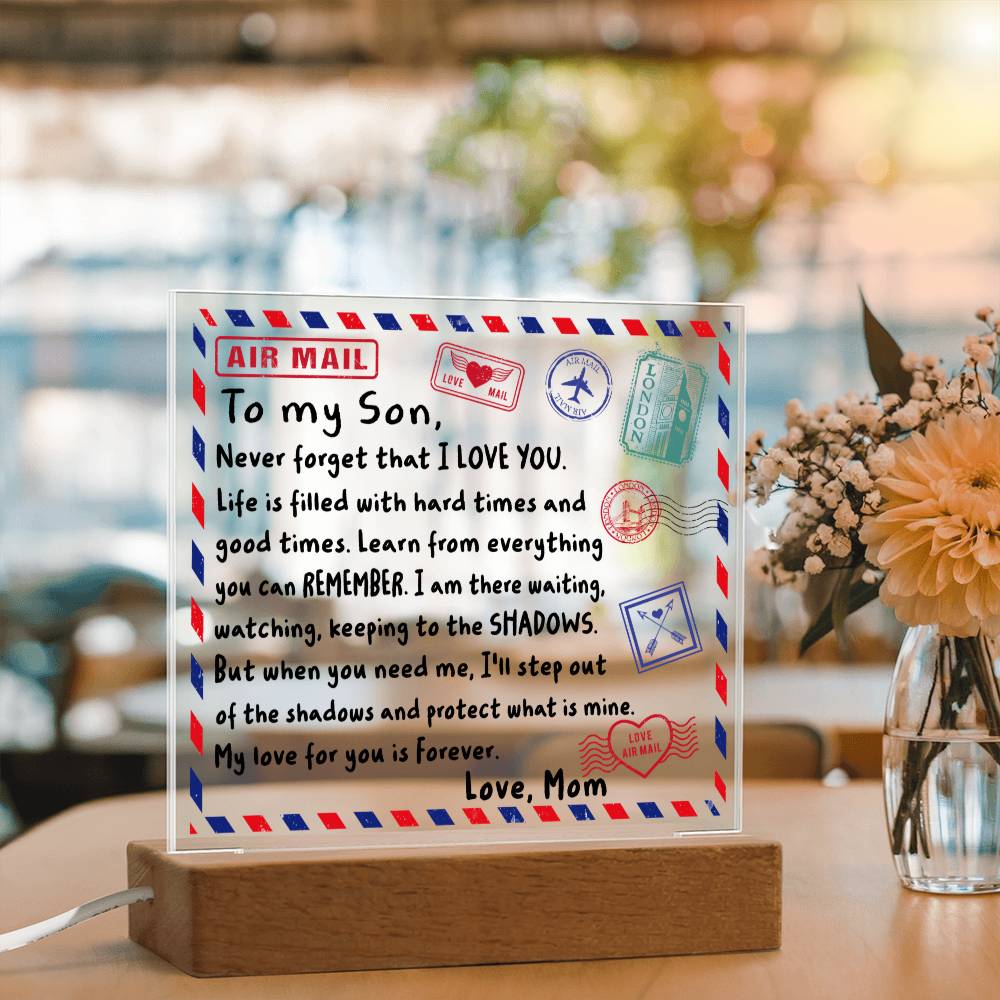 AIR MAIL
LOVE MAIL
AIR MAIL
AIR MAIL
LONDON
To my Son,
Never forget that I LOVE YOU.
Life is filled with hard times and
good times. Learn from everything
you can REMEMBER. I am there waiting,
watching, keeping to the SHADOWS.
But when you need me, I'll step out
of the shadows and protect what is mine.
My love for you is Forever.
LOVE
AIR MAIL
Love, Mom